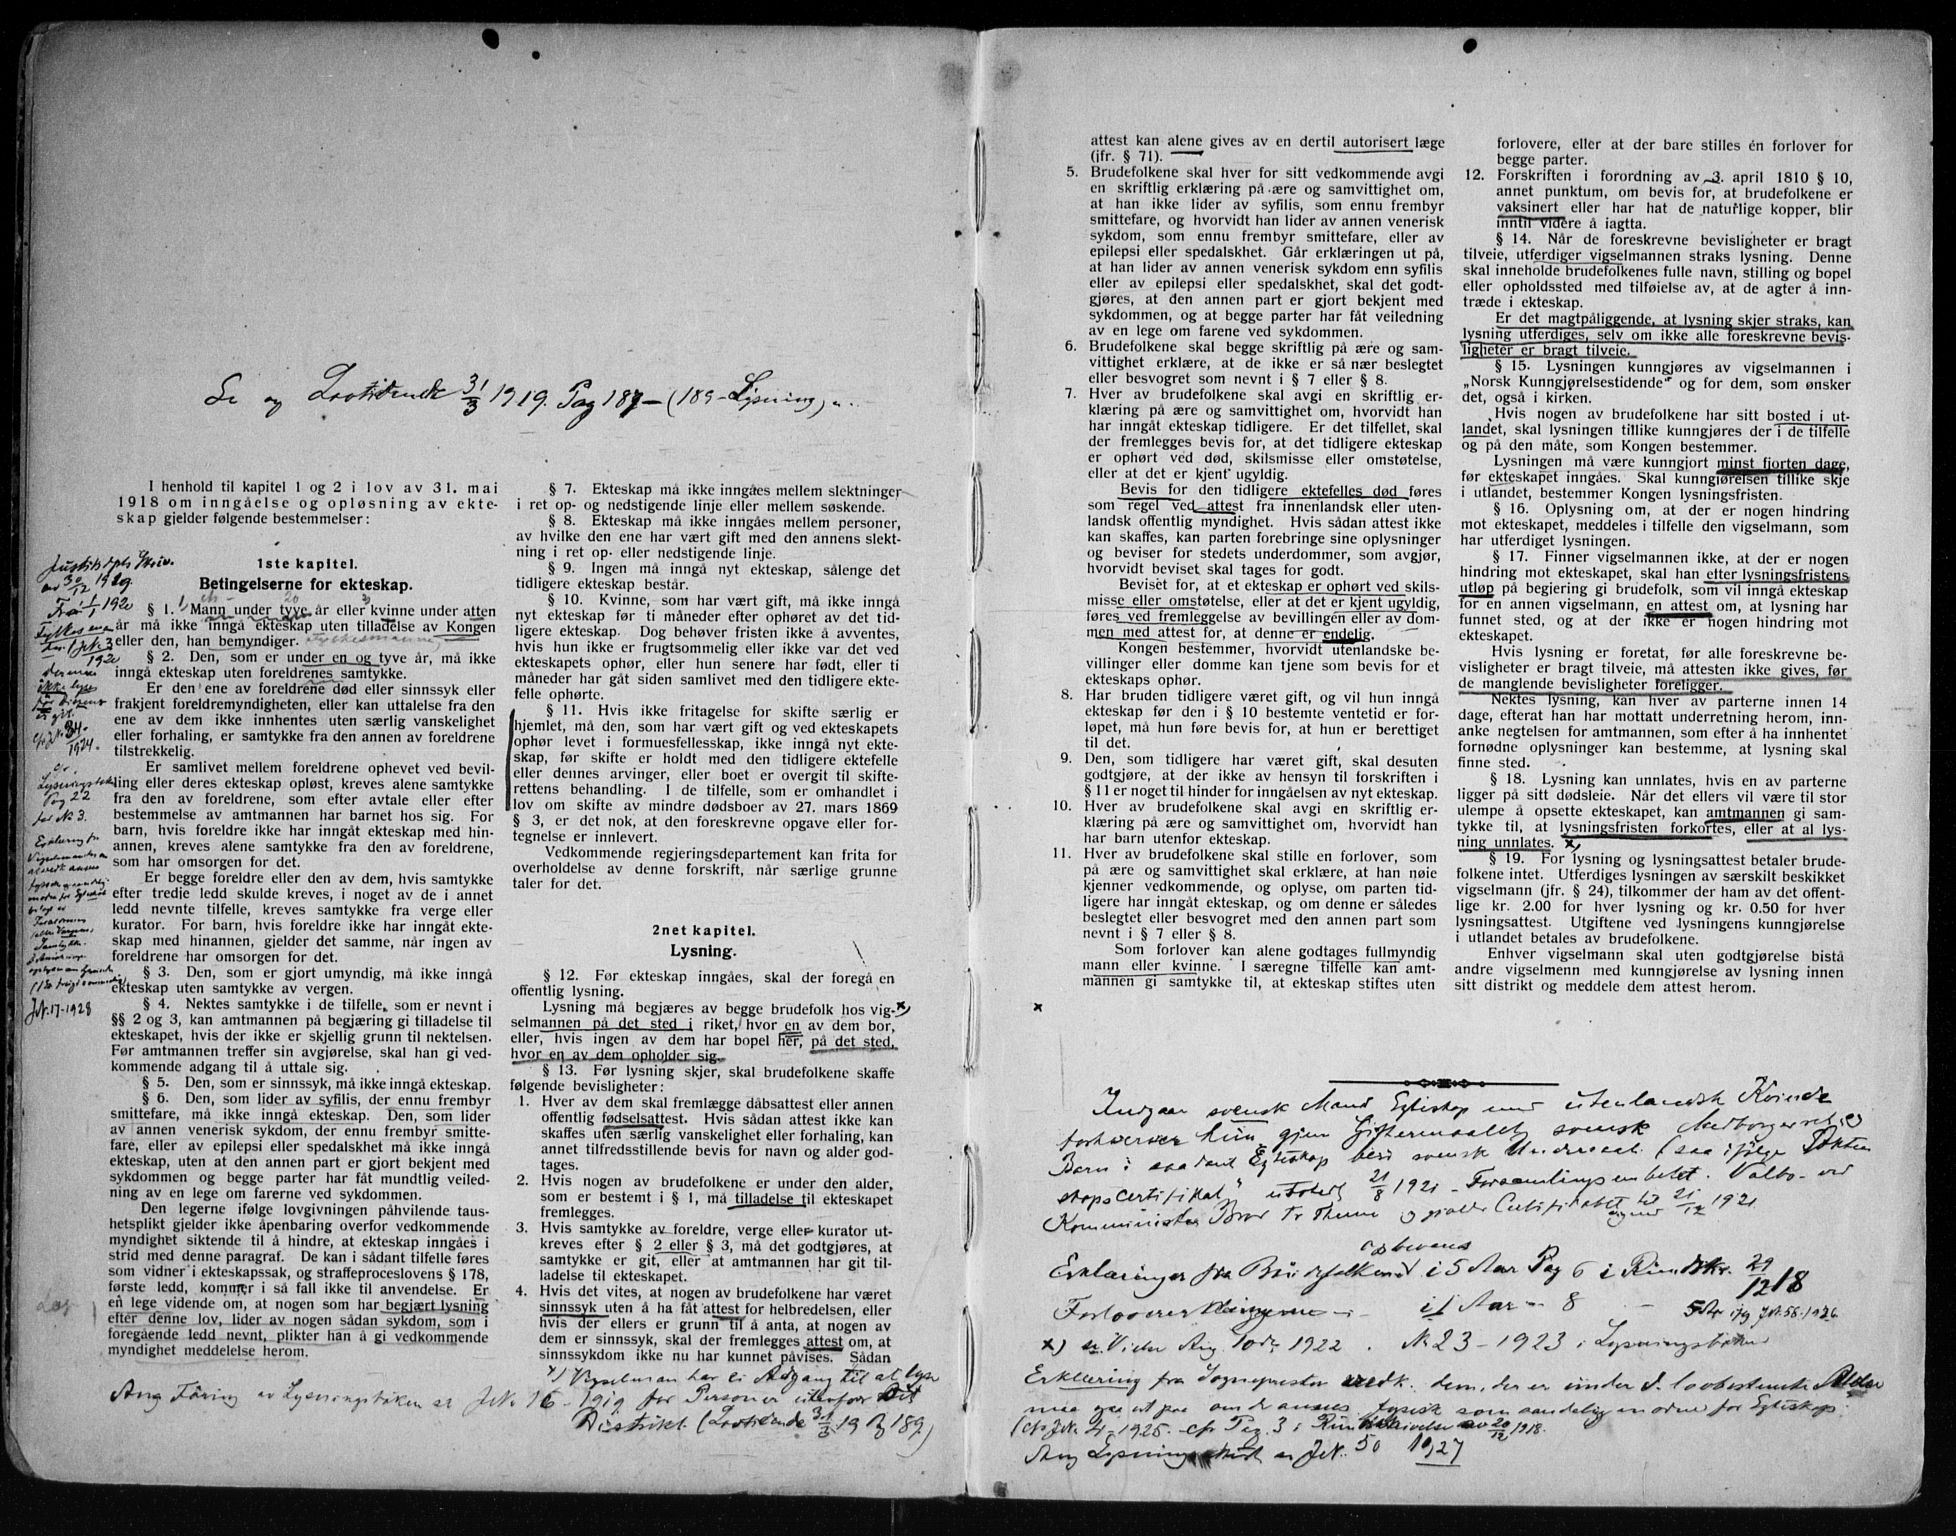 Se og Lovtidende 31/3 1919. Pag 187 – (189 – Lysning)
I henhold til kapitel 1 og 2 i lov av 31. mai
1918 om inngåelse og opløsning av ekte-
skap gjelder følgende bestemmelser:
1ste kapitel.
Betingelserne for ekteskap.
§ 1. Mann under tyve år eller kvinne under atten
år må ikke inngå ekteskap uten tilladelse av Kongen
eller den, han bemyndiger. Fylkesmannen
§ 2. Den, som er under en og tyve år, må ikke
inngå ekteskap uten foreldrenes samtykke.
Er den ene av foreldrene død eller sinnssyk eller
frakjent foreldremyndigheten, eller kan uttalelse fra den
ene av dem ikke innhentes uten særlig vanskelighet
eller forhaling, er samtykke fra den annen av foreldrene
tilstrekkelig.
Er samlivet mellem foreldrene ophevet ved bevil-
ling eller deres ekteskap opløst, kreves alene samtykke
fra den av foreldrene, som efter avtale eller efter
bestemmelse av amtmannen har barnet hos sig. For
barn, hvis foreldre ikke har inngått ekteskap med hin-
annen, kreves alene samtykke fra den av foreldrene,
som har omsorgen for det.
Er begge foreldre eller den av dem, hvis samtykke
efter tredje ledd skulde kreves, i noget av de i annet
ledd nevnte tilfelle, kreves samtykke fra verge eller
kurator. For barn, hvis foreldre ikke har inngått ekte-
skap med hinannen, gjelder det samme, når ingen av
foreldrene har omsorgen for det.
§ 3. Den, som er gjort umyndig, må ikke inngå
ekteskap uten samtykke av vergen.
§ 4. Nektes samtykke i de tilfelle, som er nevnt i
§§ 2 og 3, kan amtmannen på begjæring gi tilladelse til
ekteskapet, hvis der ikke er skjellig grunn til nektelsen.
Før amtmannen treffer sin avgjørelse, skal han gi ved-
kommende adgang til å uttale sig.
§ 5. Den, som er sinnssyk, må ikke inngå ekteskap.
§ 6. Den, som lider av syfilis, der ennu frembyr
smittefare, må ikke inngå ekteskap. Den, som lider
av annen venerisk sykdom, der ennu frembyr smitte-
fare, eller av epilepsi eller spedalskhet må ikke inngå
ekteskap, uten at den annen part er gjort bekjent med
sykdommen og begge parter har fåt mundtlig veiled-
ning av en lege om farerne ved sykdommen.
Den legerne ifølge lovgivningen påhvilende taus-
hetsplikt gjelder ikke åpenbaring overfor vedkommende
myndighet siktende til å hindre, at ekteskap inngåes i
strid med denne paragraf. De kan i sådant tilfelle føres
som vidner i ekteskapssak, og straffeproceslovens § 178,
første ledd, kommer i så fall ikke til anvendelse. Er
en lege vidende om, at nogen som har begjært lysning
efter denne lov, lider av nogen sådan sykdom, som i
foregående ledd nevnt, plikter han å gi vedkommende
myndighet meddelelse herom.
av 30/12 1919.
Fra 1/1 1920
1920
1924.
Pag 22
for No 3.
JNr. 17-1928
§ 7. Ekteskap må ikke inngåes mellem slektninger
i ret op- og nedstigende linje eller mellem søskende.
§ 8. Ekteskap må ikke inngåes mellem personer,
av hvilke den ene har vært gift med den annens slekt-
ning i ret op- eller nedstigende linje.
§ 9. Ingen må inngå nyt ekteskap, sålenge det
tidligere ekteskap består.
§ 10. Kvinne, som har vært gift, må ikke inngå
nyt ekteskap før ti måneder efter ophøret av det tid-
ligere ekteskap. Dog behøver fristen ikke å avventes,
hvis hun ikke er frugtsommelig eller ikke var det ved
ekteskapets ophør, eller hun senere har født, eller ti
måneder har gåt siden samlivet med den tidligere ekte-
felle ophørte.
§ 11. Hvis ikke fritagelse for skifte særlig er
hjemlet, må den, som har vært gift og ved ekteskapets
ophør levet i formuesfellesskap, ikke inngå nyt ekte-
skap, før skifte er holdt med den tidligere ektefelle
eller dennes arvinger, eller boet er overgit til skifte-
rettens behandling. I de tilfelle, som er omhandlet i
lov om skifte av mindre dødsboer av 27. mars 1869
§ 3, er det nok, at den foreskrevne opgave eller for-
tegnelse er innlevert.
Vedkommende regjeringsdepartement kan frita for
overholdelse av denne forskrift, når særlige grunne
taler for det.
2net kapitel.
Lysning.
§ 12. Før ekteskap inngåes, skal der foregå en
offentlig lysning.
Lysning må begjæres av begge brudefolk hos vig-
selmannen på det sted i riket, hvor en av dem bor,
eller, hvis ingen av dem har bopel her, på det sted,
hvor en av dem opholder sig.
§ 13. Før lysning skjer, skal brudefolkene skaffe
følgende bevisligheter:
1. Hver av dem skal fremlægge dåbsattest eller annen
offentlig fødselsattest. Hvis sådan attest ikke kan
skaffes uten særlig vanskelighet eller forhaling, kan
annet tilfredsstillende bevis for navn og alder god-
tages.
2. Hvis nogen av brudefolkene er under den alder,
som er bestemt i § 1, må tilladelse til ekteskapet
fremlegges.
3. Hvis samtykke av foreldre, verge eller kurator ut-
kreves efter § 2 eller § 3, må det godtgjøres, at
samtykke er git, eller at amtmannen har git til-
ladelse til ekteskapet.
4. Hvis det vites, at nogen av brudefolkene har været
sinnssyk uten å ha fåt attest for helbredelsen, eller
hvis der ellers er grunn til å anta, at nogen av
dem er sinnssyk, skal der fremlegges attest om, at
sinnssykdom ikke nu har kunnet påvises. Sådan
x) Vigselman har ei Adgang til at lyse
Ang Föring av Lysningsboken se JNr. 16 - 1919 for Personer utenfor sit
Distrikt (Lovtidende 31/3 19 P 189)
attest kan alene gives av en dertil autorisert læge
(jfr. § 71).
5. Brudefolkene skal hver for sitt vedkommende avgi
en skriftlig erklæring på ære og samvittighet om,
at han ikke lider av syfilis, som ennu frembyr
smittefare, og hvorvidt han lider av annen venerisk
sykdom, som ennu frembyr smittefare, eller av
epilepsi eller spedalskhet. Går erklæringen ut på,
at han lider av annen venerisk sykdom enn syfilis
eller av epilepsi eller spedalskhet, skal det godt-
gjøres, at den annen part er gjort bekjent med
sykdommen, og at begge parter har fåt veiledning
av en lege om farene ved sykdommen.
6. Brudefolkene skal begge skriftlig på ære og sam-
vittighet erklære, at de ikke er så nær beslegtet
eller besvogret som nevnt i § 7 eller § 8.
7. Hver av brudefolkene skal avgi en skriftlig er-
klæring på ære og samvittighet om, hvorvidt han
har inngåt ekteskap tidligere. Er det tilfellet, skal
der fremlegges bevis for, at det tidligere ekteskap
er ophørt ved død, skilsmisse eller omstøtelse,
eller at det er kjent ugyldig.
Bevis for den tidligere ektefelles død føres
som regel ved attest fra innenlandsk eller uten-
landsk offentlig myndighet. Hvis sådan attest ikke
kan skaffes, kan parten forebringe sine oplysninger
og beviser for stedets underdommer, som avgjør,
hvorvidt beviset skal tages for godt.
Beviset for, at et ekteskap er ophørt ved skils-
misse eller omstøtelse, eller at det er kjent ugyldig,
føres ved fremleggelse av bevillingen eller av dom-
men med attest for, at denne er endelig.
Kongen bestemmer, hvorvidt utenlandske be-
villinger eller domme kan tjene som bevis for et
ekteskaps ophør.
8. Har bruden tidligere været gift, og vil hun inngå
ekteskap før den i § 10 bestemte ventetid er for-
løpet, må hun føre bevis for, at hun er berettiget
til det.
9. Den, som tidligere har været gift, skal desuten
godtgjøre, at der ikke av hensyn til forskriften i
§ 11 er noget til hinder for inngåelsen av nyt ekteskap.
10. Hver av brudefolkene skal avgi en skriftlig er-
klæring på ære og samvittighet om, hvorvidt han
har barn utenfor ekteskap.
11. Hver av brudefolkene skal stille en forlover, som
på ære og samvittighet skal erklære, at han nøie
kjenner vedkommende, og oplyse, om parten tid-
ligere har inngåt ekteskap, og om denne er således
beslegtet eller besvogret med den annen part som
nevnt i § 7 eller § 8.
Som forlover kan alene godtages fullmyndig
mann eller kvinne. I særegne tilfelle kan amt-
mannen gi samtykke til, at ekteskap stiftes uten
forlovere, eller at der bare stilles én forlover for
begge parter.
12. Forskriften i forordning av 3. april 1810 § 10,
annet punktum, om bevis for, at brudefolkene er
vaksinert eller har hat de naturlige kopper, blir
inntil videre å iagtta.
§ 14. Når de foreskrevne bevisligheter er bragt
tilveie, utferdiger vigselmannen straks lysning. Denne
skal inneholde brudefolkenes fulle navn, stilling og bopel
eller opholdssted med tilføielse av, at de agter å inn-
træde i ekteskap.
Er det magtpåliggende, at lysning skjer straks, kan
lysning utferdiges, selv om ikke alle foreskrevne bevis-
ligheter er bragt tilveie.
§ 15. Lysningen kunngjøres av vigselmannen i
„Norsk Kunngjørelsestidende" og for dem, som ønsker
det, også i kirken.
Hvis nogen av brudefolkene har sitt bosted i ut-
landet, skal lysningen tillike kunngjøres der i de tilfelle
og på den måte, som Kongen bestemmer.
Lysningen må være kunngjort minst fjorten dage,
før ekteskapet inngåes. Skal kunngjørelsen tillike skje
i utlandet, bestemmer Kongen lysningsfristen.
§ 16. Oplysning om, at der er nogen hindring
mot ekteskapet, meddeles i tilfelle den vigselmann, som
har utferdiget lysningen.
§ 17. Finner vigselmannen ikke, at der er nogen
hindring mot ekteskapet, skal han efter lysningsfristens
utløp på begjæring gi brudefolk, som vil inngå ekteskap
for en annen vigselmann, en attest om, at lysning har
funnet sted, og at der ikke er nogen hindring mot
ekteskapet.
Hvis lysning er foretat, før alle foreskrevne be-
visligheter er bragt tilveie, må attesten ikke gives, før
de manglende bevisligheter foreligger.
Nektes lysning, kan hver av parterne innen 14
dage, efterat han har mottatt underretning herom, inn-
anke negtelsen for amtmannen, som efter å ha innhentet
fornødne oplysninger kan bestemme, at lysning skal
finne sted.
§ 18. Lysning kan unnlates, hvis en av parterne
ligger på sitt dødsleie. Når det ellers vil være til stor
ulempe å opsette ekteskapet, kan amtmannen gi sam-
tykke til, at lysningsfristen forkortes, eller at al lys-
ning unnlates. x)
§ 19. For lysning og lysningsattest betaler brude-
folkene intet. Utferdiges lysningen av særskilt beskikket
vigselmann (jfr. § 24), tilkommer der ham av det offent-
lige kr. 2.00 for hver lysning og kr. 0.50 for hver
lysningsattest. Utgiftene ved lysningens kunngjørelse
i utlandet betales av brudefolkene.
Enhver vigselmann skal uten godtgjørelse bistå
andre vigselmenn med kunngjørelse av lysning innen
sitt distrikt og meddele dem attest herom.
Indgaar svensk Mand Egteskap med utenlandsk Kvinde
forhverver hun gjen Giftermaalet svensk Medborgerret og
Barn i saadant Egteskap bes svensk Undersaat (saa ifølge "Ækten
skapscertifikat" utstedt 21/8 1921 - Forsamlingsembetet. Valbo. ved
Kommunister Bror Fr Thune og Certifikatet 21/12 1921
opbevares
Erklæringer fra Brudefolkene i 5 Aar Pag 6 i Rundskr. 29/12 18
Forlovererklæringerne – i 1 Aar – 8 – 5 Ar JNr. 58-1926
x) se Vider Ang 10de 1922. Nr 23 – 1923 i Lysningsboken
Erklæring fra Sogneprester vedk. dem, der er under d. lovbestemte Alder
maa gaa ut paa om de ansees fysisk som aandelig modne for Egteskap
(cfr JNr. 21-1925. cfr Pag. 3 i Rundskrivelse av 20/12 1918.
Ang Lysning se JNr. 50 1927